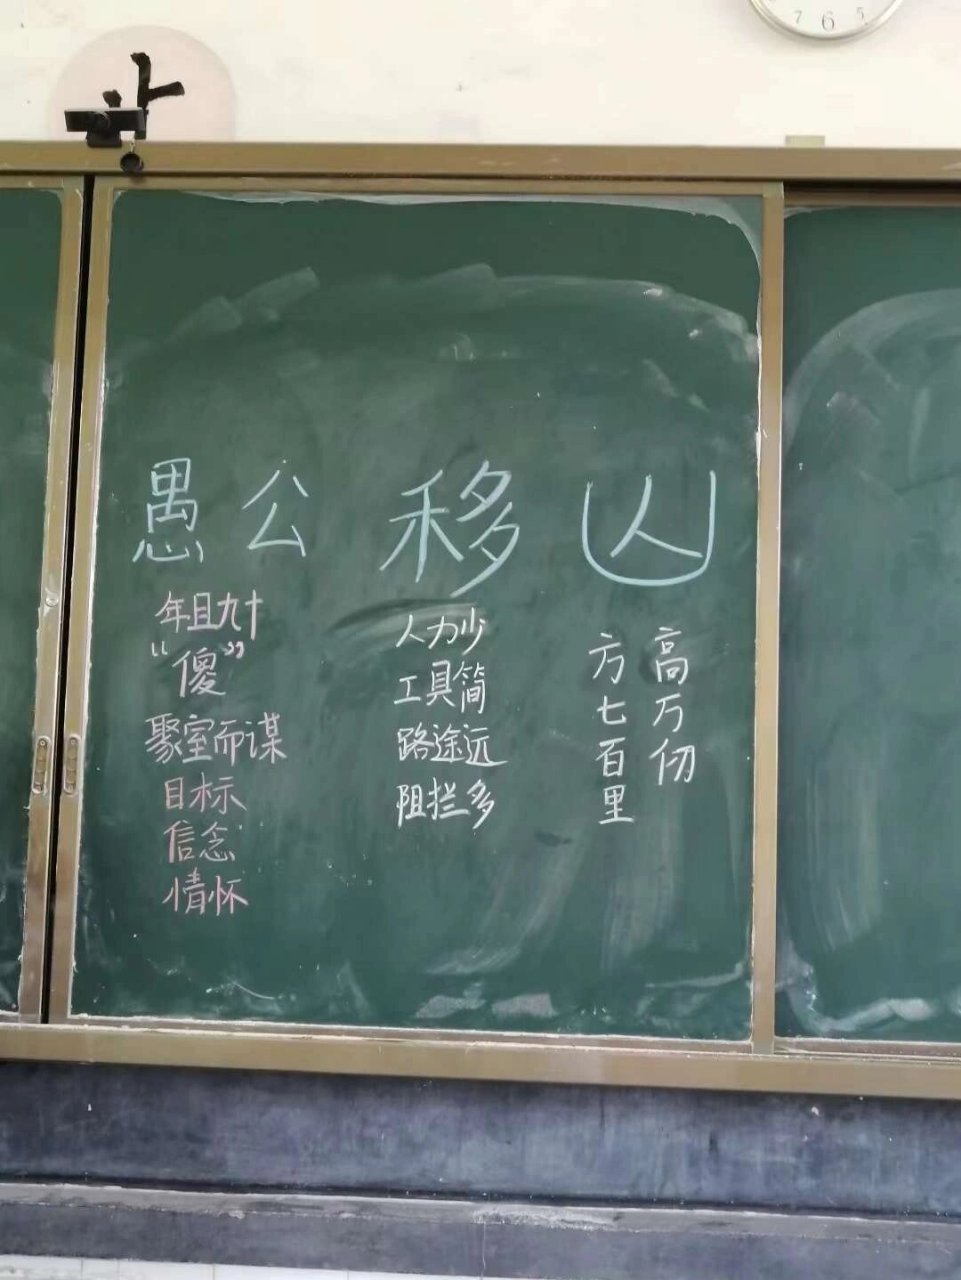 7 6 5
愚公移山
年且九十
“傻”
聚室而谋
目标
信念
情怀
人力少
工具简
路途远
阻拦多
方七百里
高万仞